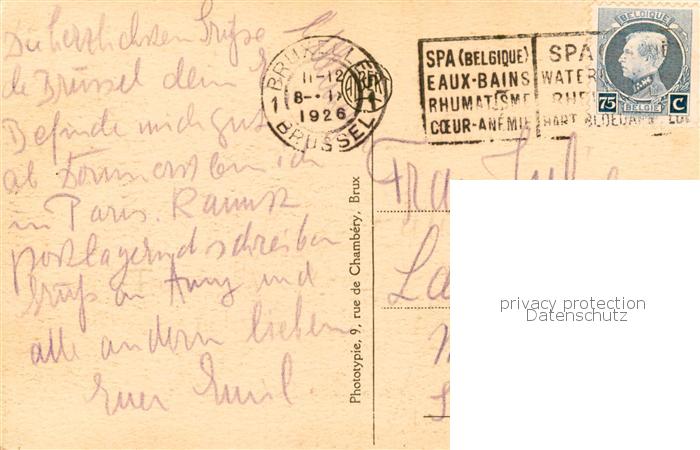 Die herzlichsten Grüße
de Brüssel dein
Befinde mich gut
ab Donnerstag bin ich
in Paris. Kannst
postlagernd schreiben
Gruß an Anny und
alle andern lieben
Euer Emil.
BRUXELLES
11-12
8-
1 1926 1
BRUSSEL
SPA (BELGIQUE)
EAUX-BAINS
RHUMATISME
CŒUR-ANÉMIE
SPA
WATER
HART BLOEDARM
BELGIQUE
75 C
BELGIE
Phototypie, 9, rue de Chambéry, Brux
Frau
privacy protection
Datenschutz